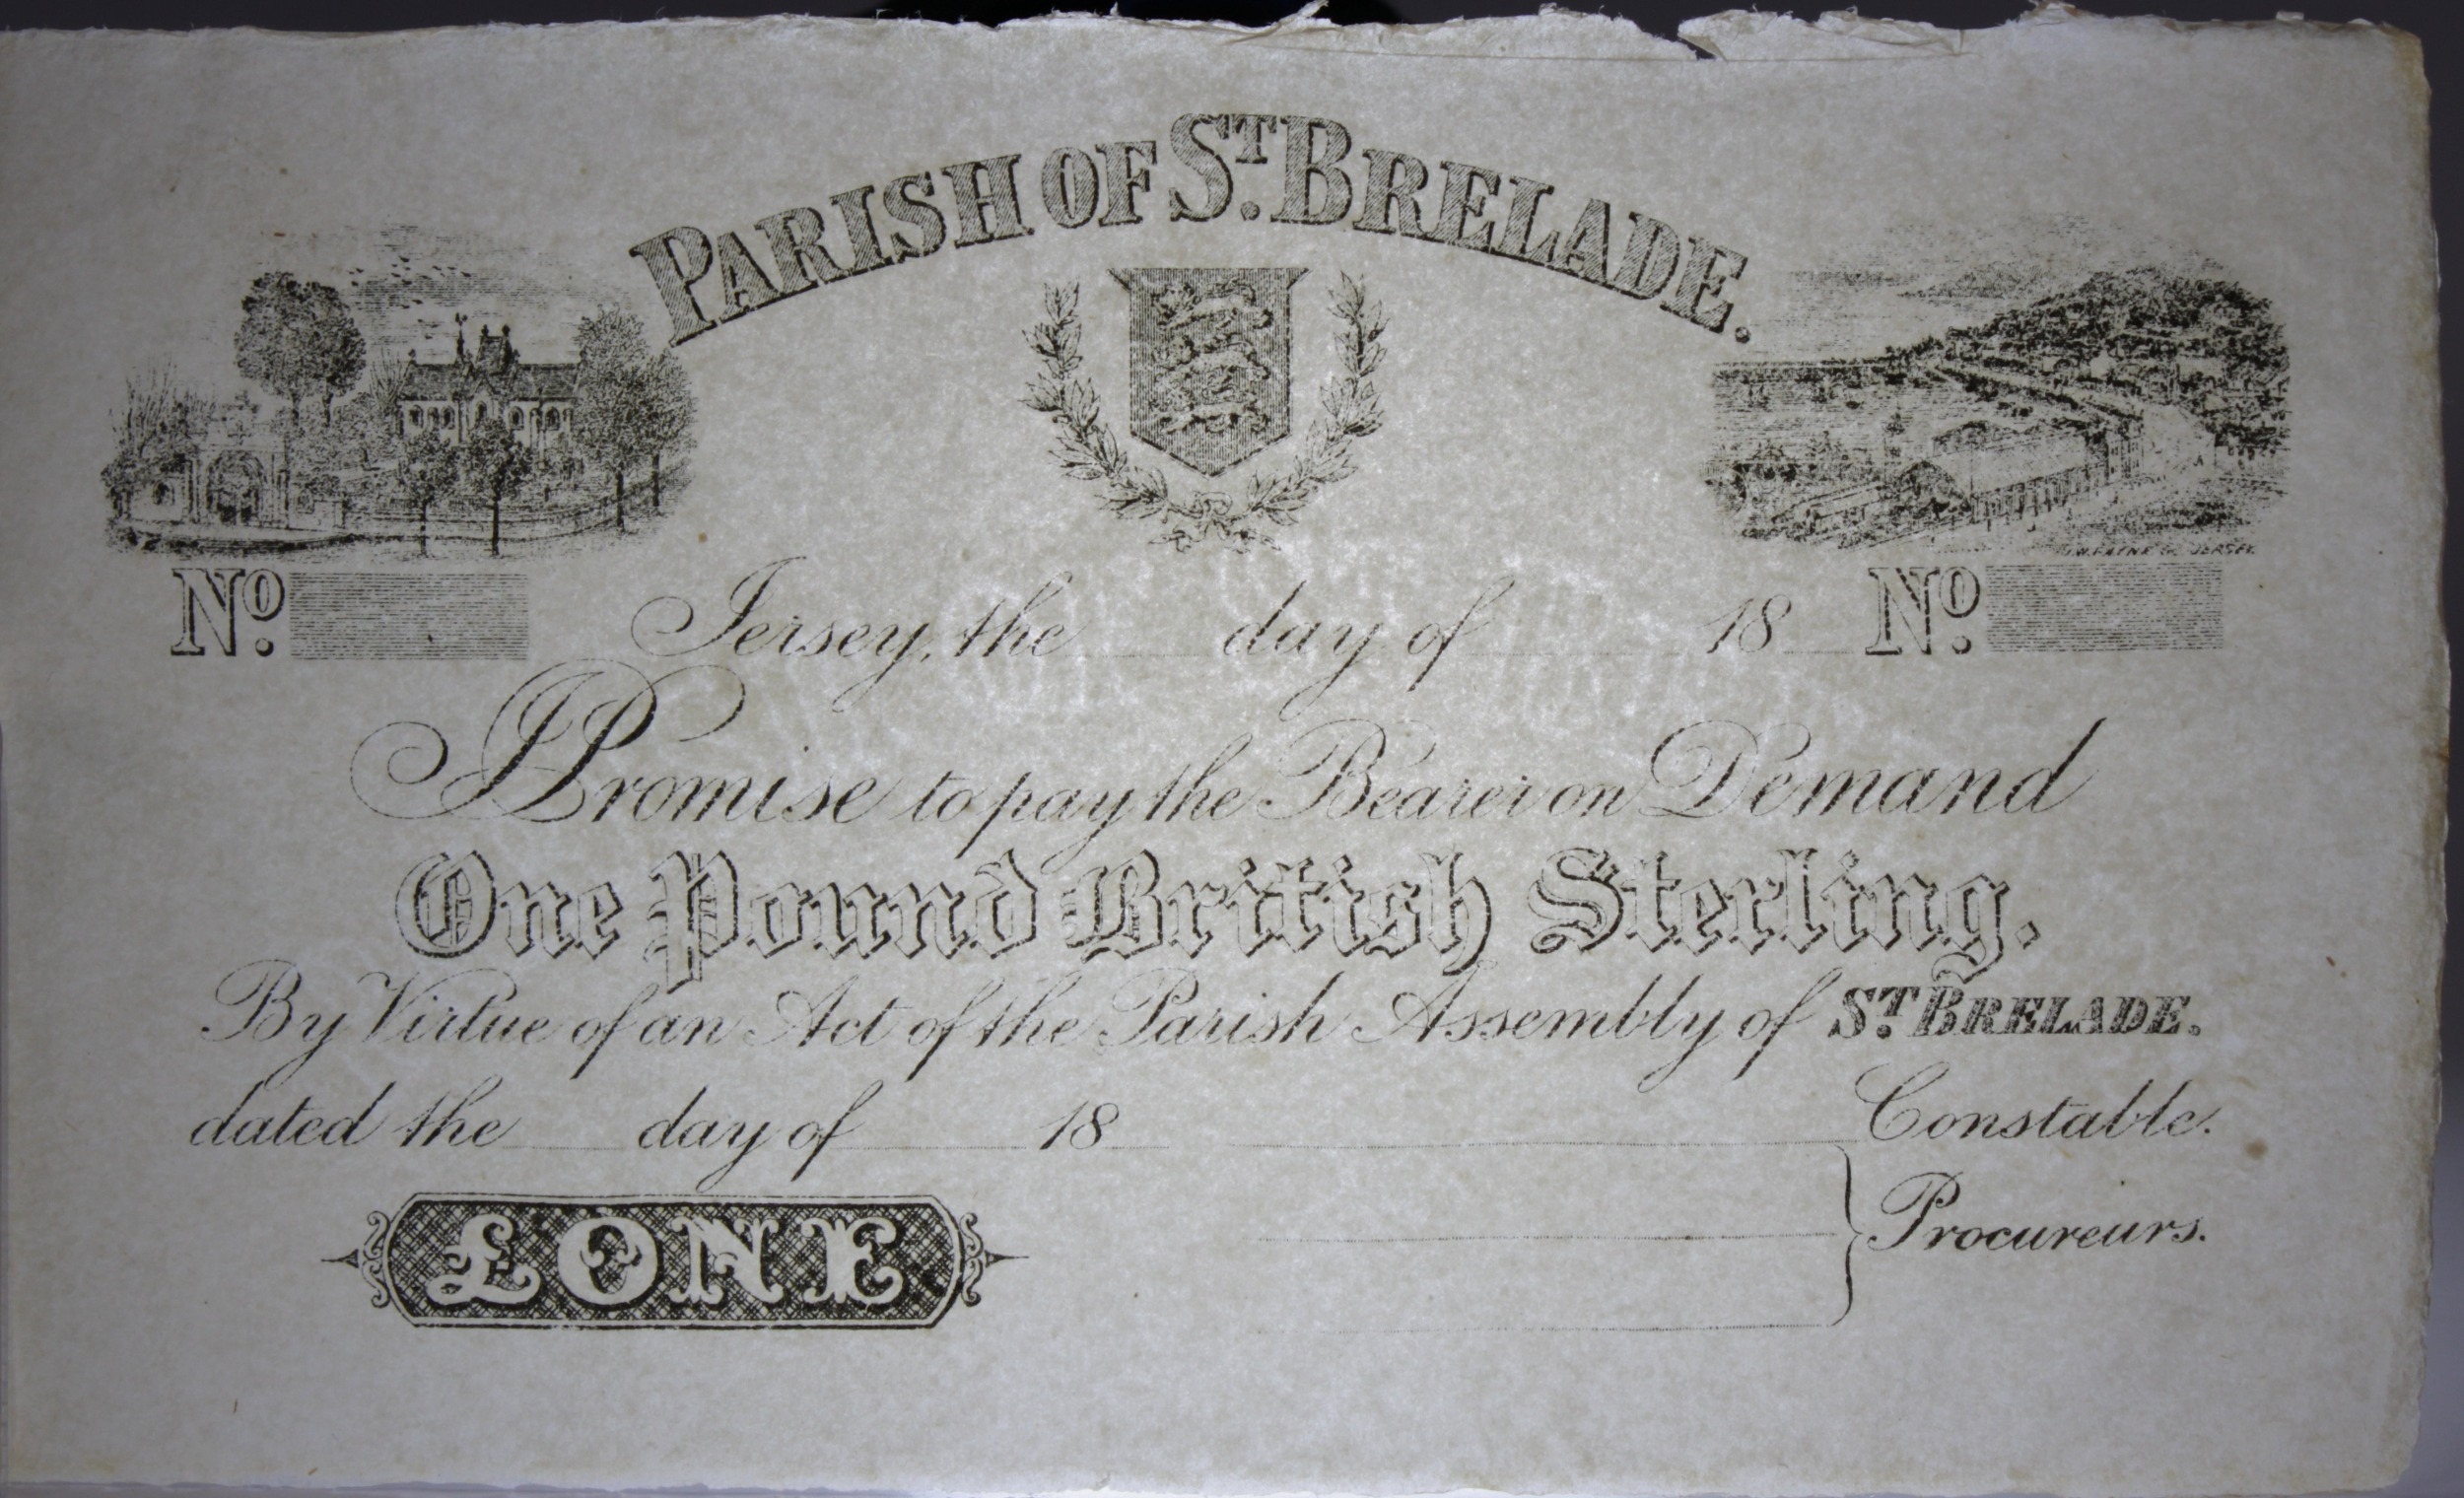 PARISH OF ST. BRELADE.
JERSEY.
No. Jersey, the day of 18 No.
I Promise to pay the Bearer on Demand
One Pound British Sterling.
By Virtue of an Act of the Parish Assembly of ST. BRELADE.
dated the day of 18 Constable.
Procureurs.
£ONE